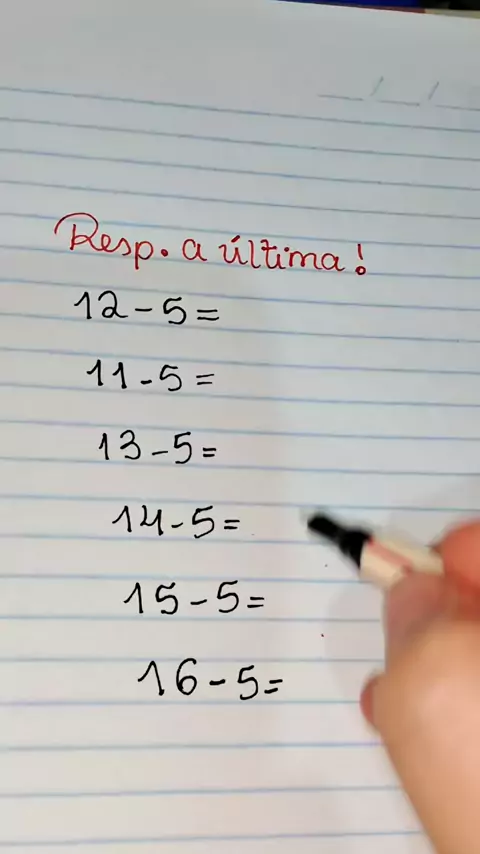 Resp. a última!
12-5=
11-5=
13-5=
14-5=
15-5=
16-5=